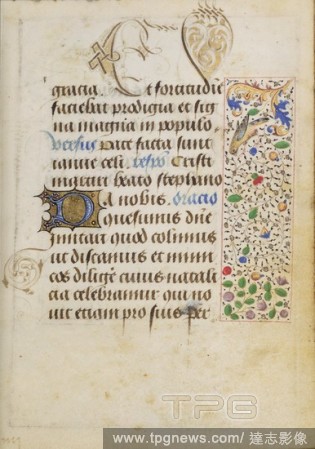 gracia Et fortitudie
faciebat prodigia et sig
na magna in populo
Versus Pate facta sunt
ianue celi respo Cristi
martiri beato stephano
Da nobis. Oracio
quesumus dne
imitari quod colimus
ut discamus et inim
cos diligere cuius natali
cia celebramur qui no
uit etiam pro suis per
TPG
www.tpgnews.com/ 達志影像